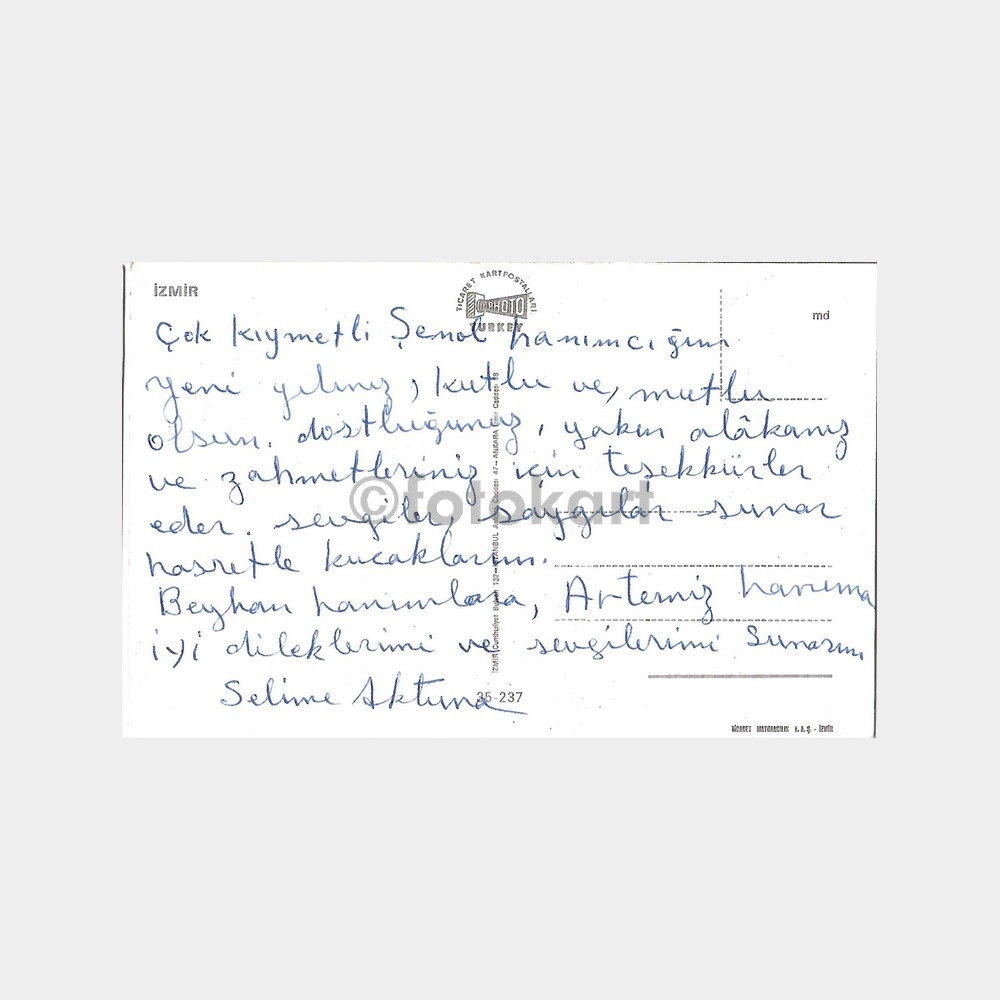 İZMİR
TİCARET KARTPOSTALLARI
PHOTO
TURKEY
md
Çok kıymetli Şenol hanımcığım
Yeni yılınız, kutlu ve, mutlu
olsun. dostluğunuz, yakın alâkanız
ve zahmetleriniz için teşekkürler
eder. sevgiler, saygılar sunar
hasretle kucaklarım.
Beyhan hanımlara, Artemiz hanıma
iyi dileklerimi ve sevgilerimi sunarım
Selime Aktuna
©fotokart
İZMİR Cumhuriyet Bulvarı 132-İSTANBUL Ankara Caddesi 47-ANKARA İzmir Caddesi
35-237
TİCARET MATBAACILIK T.A.Ş. - İZMİR